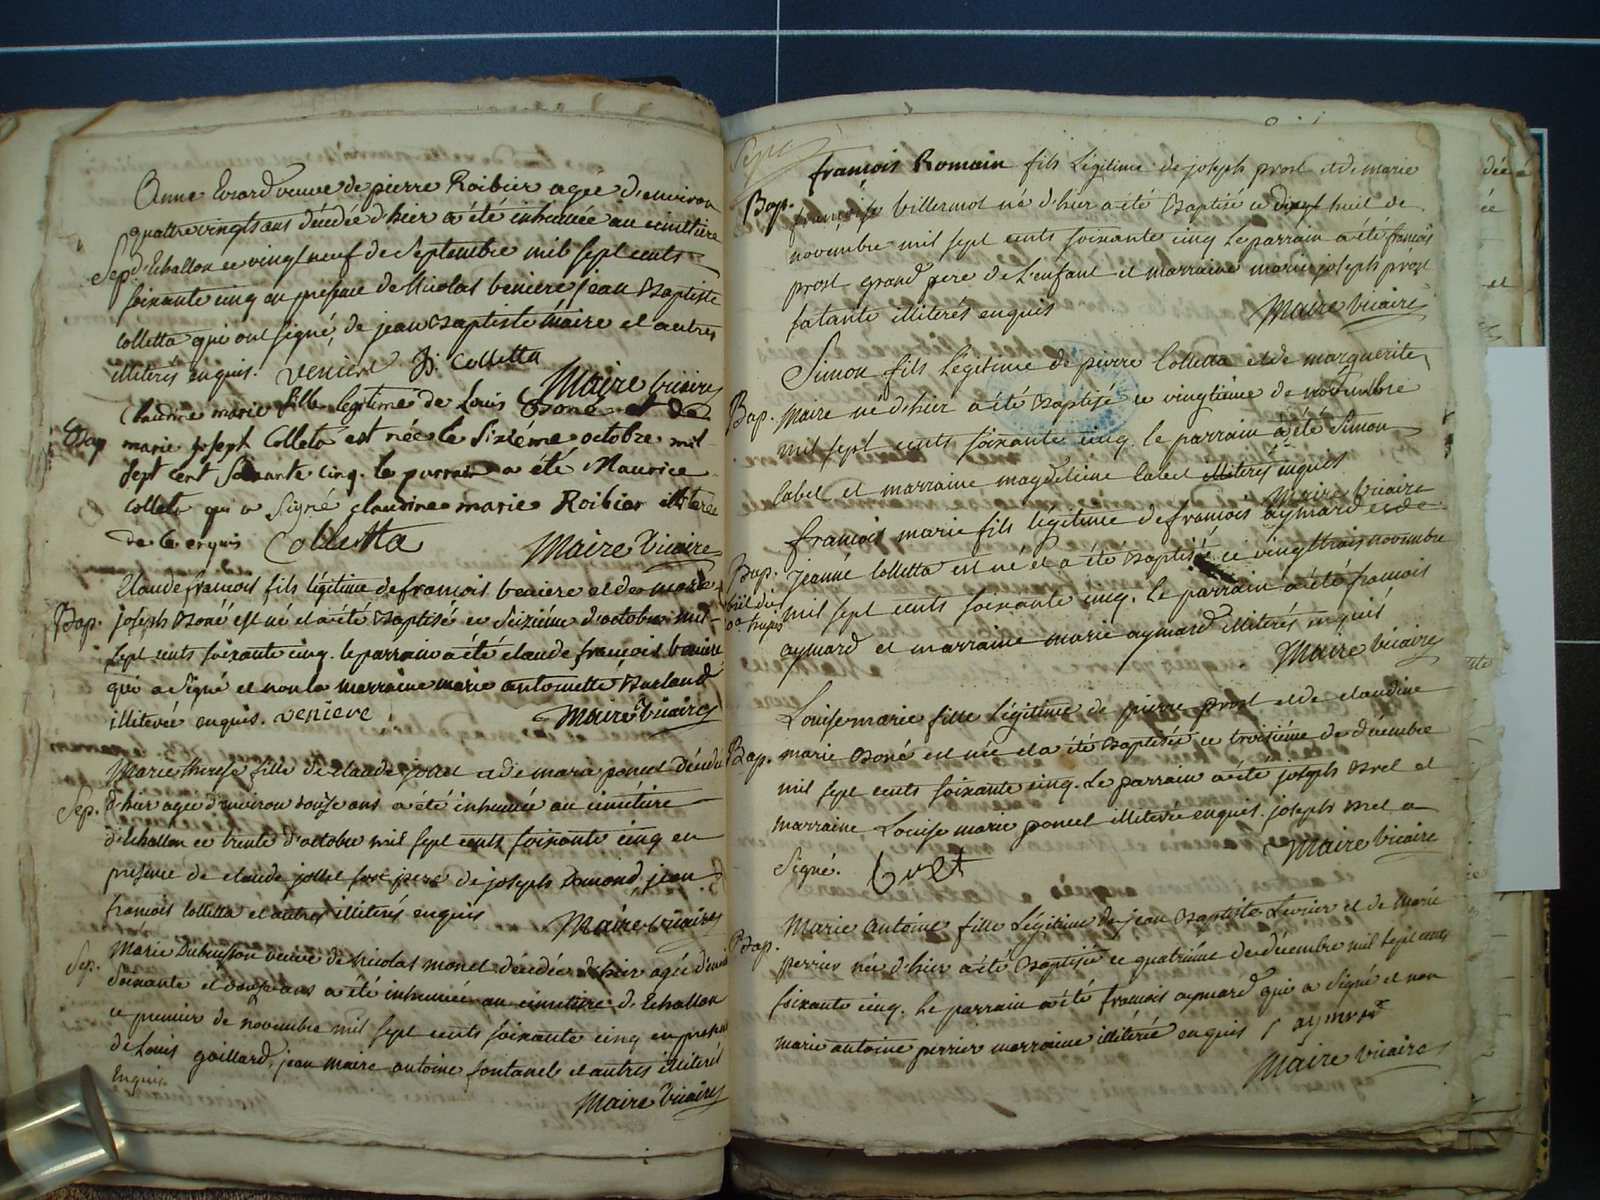 Anne Evrard veuve de pierre Roibier agée d'environ
quattre vingts ans décédée d'hier a été inhumée au cimitiere
Sep. d'Echallon ce vingt neuf de Septembre mil sept cents
soixante cinq en présence de Nicolas beniere jean Baptiste
Colletta qui ont signé, de jean Baptiste Maire et autres
illiterés enquis. veniere J: Colletta
Maire Vicaire
Bap. Claudine marie fille legitime de Louis Boné et de
marie joseph Colleta est née le Sixiéme octobre mil
sept cent Soixante cinq. le parrain a été Maurice
Colleta qui a Signé claudine marie Roibier illiterée
de ce enquis Colletta Maire Vicaire
Claude francois fils légitime de francois beniere et de marie
Bap. joseph Boné est né et a été Baptisé ce Seiziéme d'octobre mil
sept cents soixante cinq. le parrain a été claude francois beniere
qui a signé et non la marraine marie antoinette Burland
illiterée enquis. veniere Maire Vicaire
Marie therese fille de claude jollet et de marie poncet décédée
Sep. d'hier agée d'environ douze ans a été inhumée au cimétiere
d'Echallon ce trente d'octobre mil sept cents soixante cinq en
présence de claude jollet son pere de joseph Emond, jean
francois Colletta et autres illiterés enquis Maire Vicaire
Sep. Marie Dubuisson veuve de Nicolas monet décédée d'hier agée d'environ
Soixante et douze ans a été inhumée au cimetiere d'Echallon
ce premier de novembre mil sept cents soixante cinq en présence
de Louis goillard, jean maire antoine fontanel et autres illiterés
Enquis Maire Vicaire
francois Romain fils Légitime de joseph prost et de marie
Bap. francoise Villermot né d'hier a été Baptisé ce dixhuit de
novembre mil sept cents soixante cinq Le parrain a été francois
prost grand pere de L'enfant et marraine marie joseph prost
sa tante illiterés enquis Maire Vicaire
Simon fils Légitime de pierre Colletta et de marguerite
Bap. Maire né d'hier a été Baptisé ce vingtiéme de novembre
mil sept cents soixante cinq. le parrain a été Simon
Cabet et marraine magdeleine Cabet illiterés enquis
Maire Vicaire
francois marie fils légitime de francois aymard et de
Bap. Jeanne Colletta est né et a été Baptisé ce vingt trois novembre
mil sept cents soixante cinq. Le parrain a été francois
aymard et marraine marie aymard illiterés enquis
Maire Vicaire
Louise marie fille Légitime de pierre prost et de claudine
Bap. marie Boné est née et a été Baptisée ce troisiéme de décembre
mil sept cents soixante cinq. Le parrain a été joseph Bret et
marraine Louise marie poncet illiterée enquis. joseph Bret a
Signé. Bret Maire Vicaire
Marie Antoine fille Légitime de jean Baptiste Levrier et de Marie
Bap. perrier née d'hier a été Baptisée ce quatriéme de décembre mil sept cents
soixante cinq. Le parrain a été francois aymard qui a signé et non
marie antoine perrier marraine illiterée enquis f aymard
Maire Vicaire